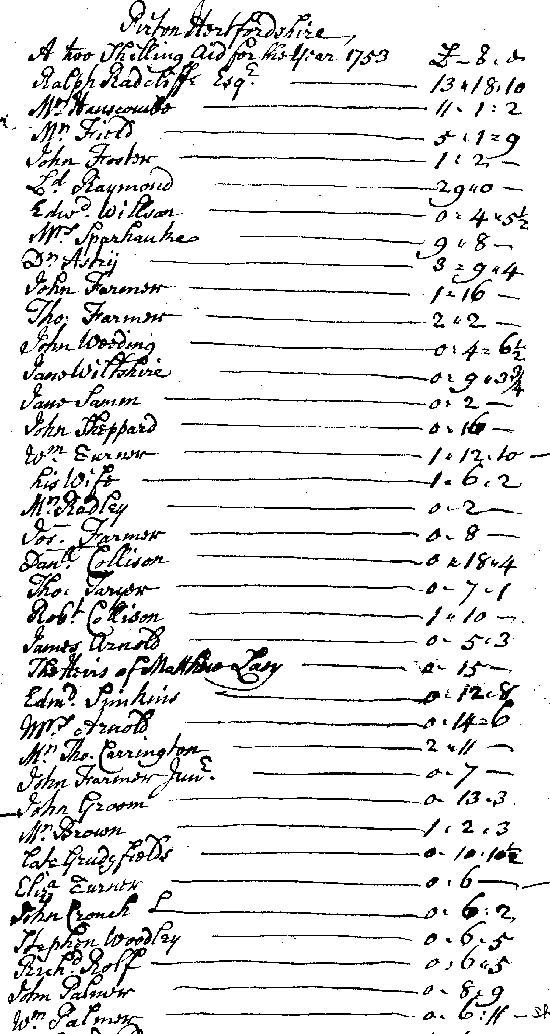 Pirton Hertfordshire,
A two Shilling Aid for the Year 1753 £ - S - d
Ralph Radcliffe Esqr. 13 " 18 : 10
Mrs Hanscombe 11 - 1 : 2
Mr Field 5 - 1 = 9
John Foster 1 : 2 -
Ld Raymond 29 " 0 -
Edwd. Willson 0 = 4 " 5½
Mrs Sparhauke 9 " 8 -
Dr Astry 3 = 9 " 4
John Farmer 1 = 16 -
Tho: Farmer 2 " 2 -
John Wooding 0 : 4 = 6½
Jane Wiltshire 0 = 9 " 3¾
Jane Samm 0 - 2 -
John Sheppard 0 - 16 -
Wm Turner 1 " 12 : 10 -
his Wife 1 - 6 : 2
Mr Radley 0 - 2 -
Jos. Farmer 0 - 8 -
Danll Collison 0 " 18 " 4
Tho: 0 - 7 - 1
Robt Collison 1 " 10 -
James Arnold 0 - 5 : 3
The Heirs of Matthew Lacy 0 - 15 -
Edmd. Simkins 0 - 12 = 8
Mrs Arnold 0 - 14 = 6
Mr Tho: Carrington 2 " 11 -
John Farmer Junr. 0 - 7 -
John Groom 0 - 13 = 3
Mr Brown 1 : 2 : 3
Late Fields 0 - 10 : 10½
Eliza Turner 0 : 6 -
John Crouch L 0 : 6 : 2
Stephen Woodley 0 - 6 : 5
Richd. Rolf 0 : 6 " 5
John Palmer 0 - 8 : 9
Wm Palmer 0 - 6 : 11